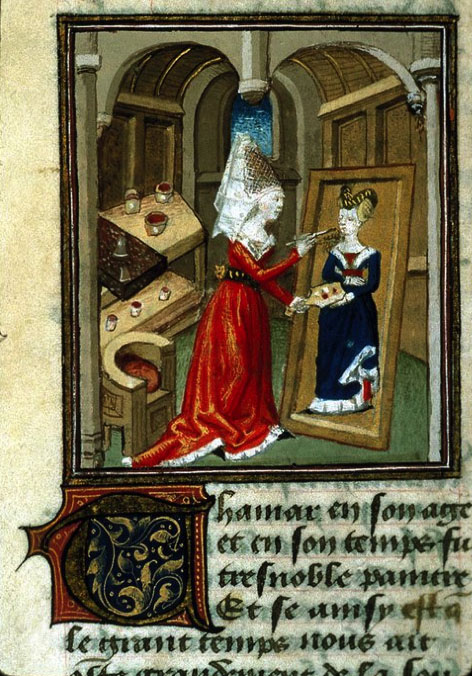 Thamar en son aage
et en son temps fu
tresnoble paintre
Et se ainsy est
le grant temps nous ait
oste grandement de la